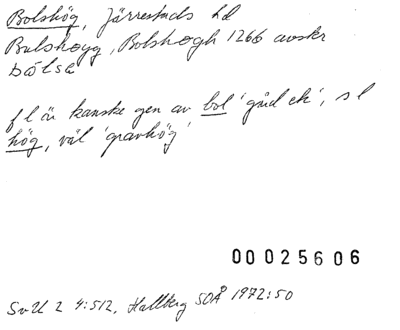 Bolshög, Järrestads hd
Bulshogg, Bolshogh 1266 avskr
DÅLSÆ
fl är kanske gen av bol 'gård etc', sl
hög, väl 'gravhög'
00025606
SvU 2 4:512, Hallberg SOÅ 1972:50